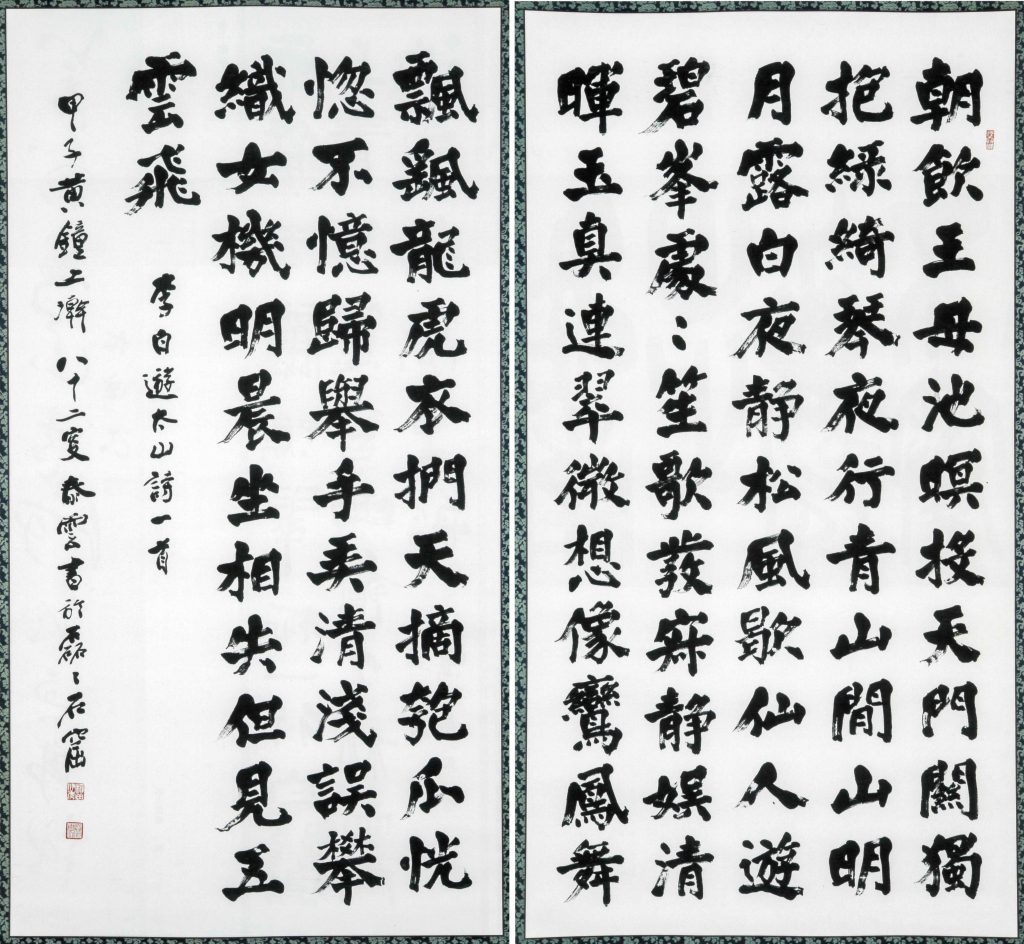 朝飲王母池暝投天門闕獨
抱綠綺琴夜行青山間山明
月露白夜靜松風歇仙人遊
碧峯處〻笙歌發寂靜娛清
暉玉真連翠微想像鸞鳳舞
飄颻龍虎衣捫天摘匏瓜恍
惚不憶歸舉手弄清淺誤攀
織女機明晨坐相失但見五
雲飛
李白遊太山詩一首
甲子黃鐘上澣 八十二叟泰雲書於磊〻石窟